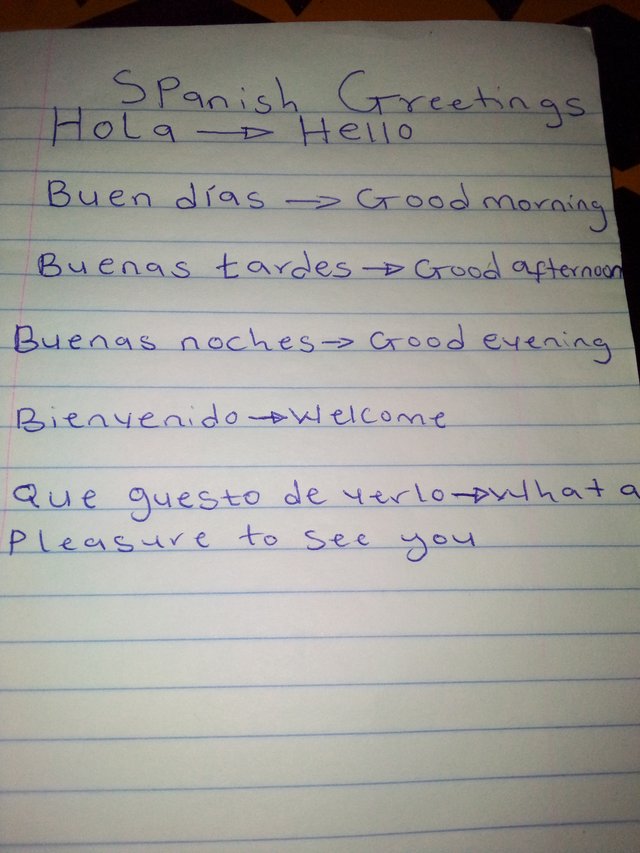 Spanish Greetings
Hola → Hello
Buen días → Good morning
Buenas tardes → Good afternoon
Buenas noches → Good evening
Bienvenido → Welcome
Que guesto de verlo → What a
Pleasure to see you